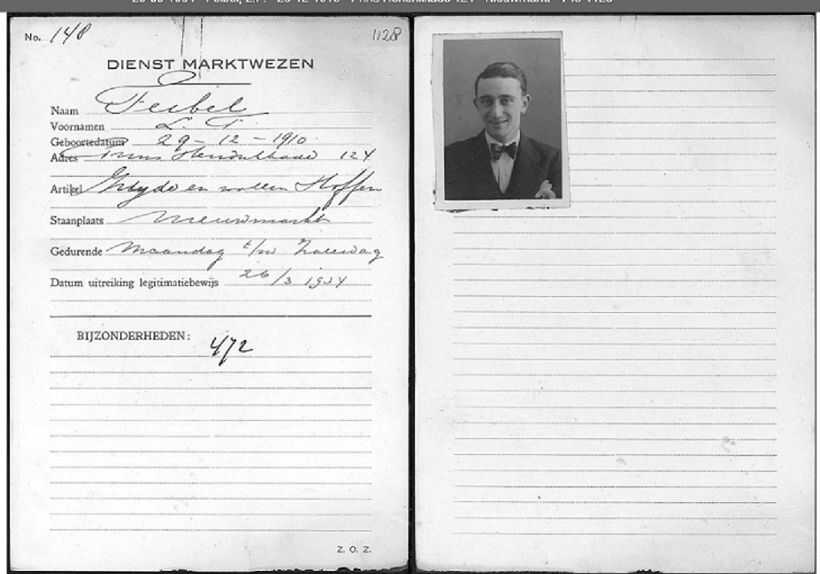 No. 148
1128
DIENST MARKTWEZEN
Naam Feibel
Voornamen L. T.
Geboortedatum 29 - 12 - 1910
Adres Prins Hendrikkade 124
Artikel Zijde en wollen Stoffen
Staanplaats Nieuwmarkt
Gedurende Maandag t/m Zaterdag
Datum uitreiking legitimatiebewijs 26/3 1934
BIJZONDERHEDEN:
472
Z. O. Z.